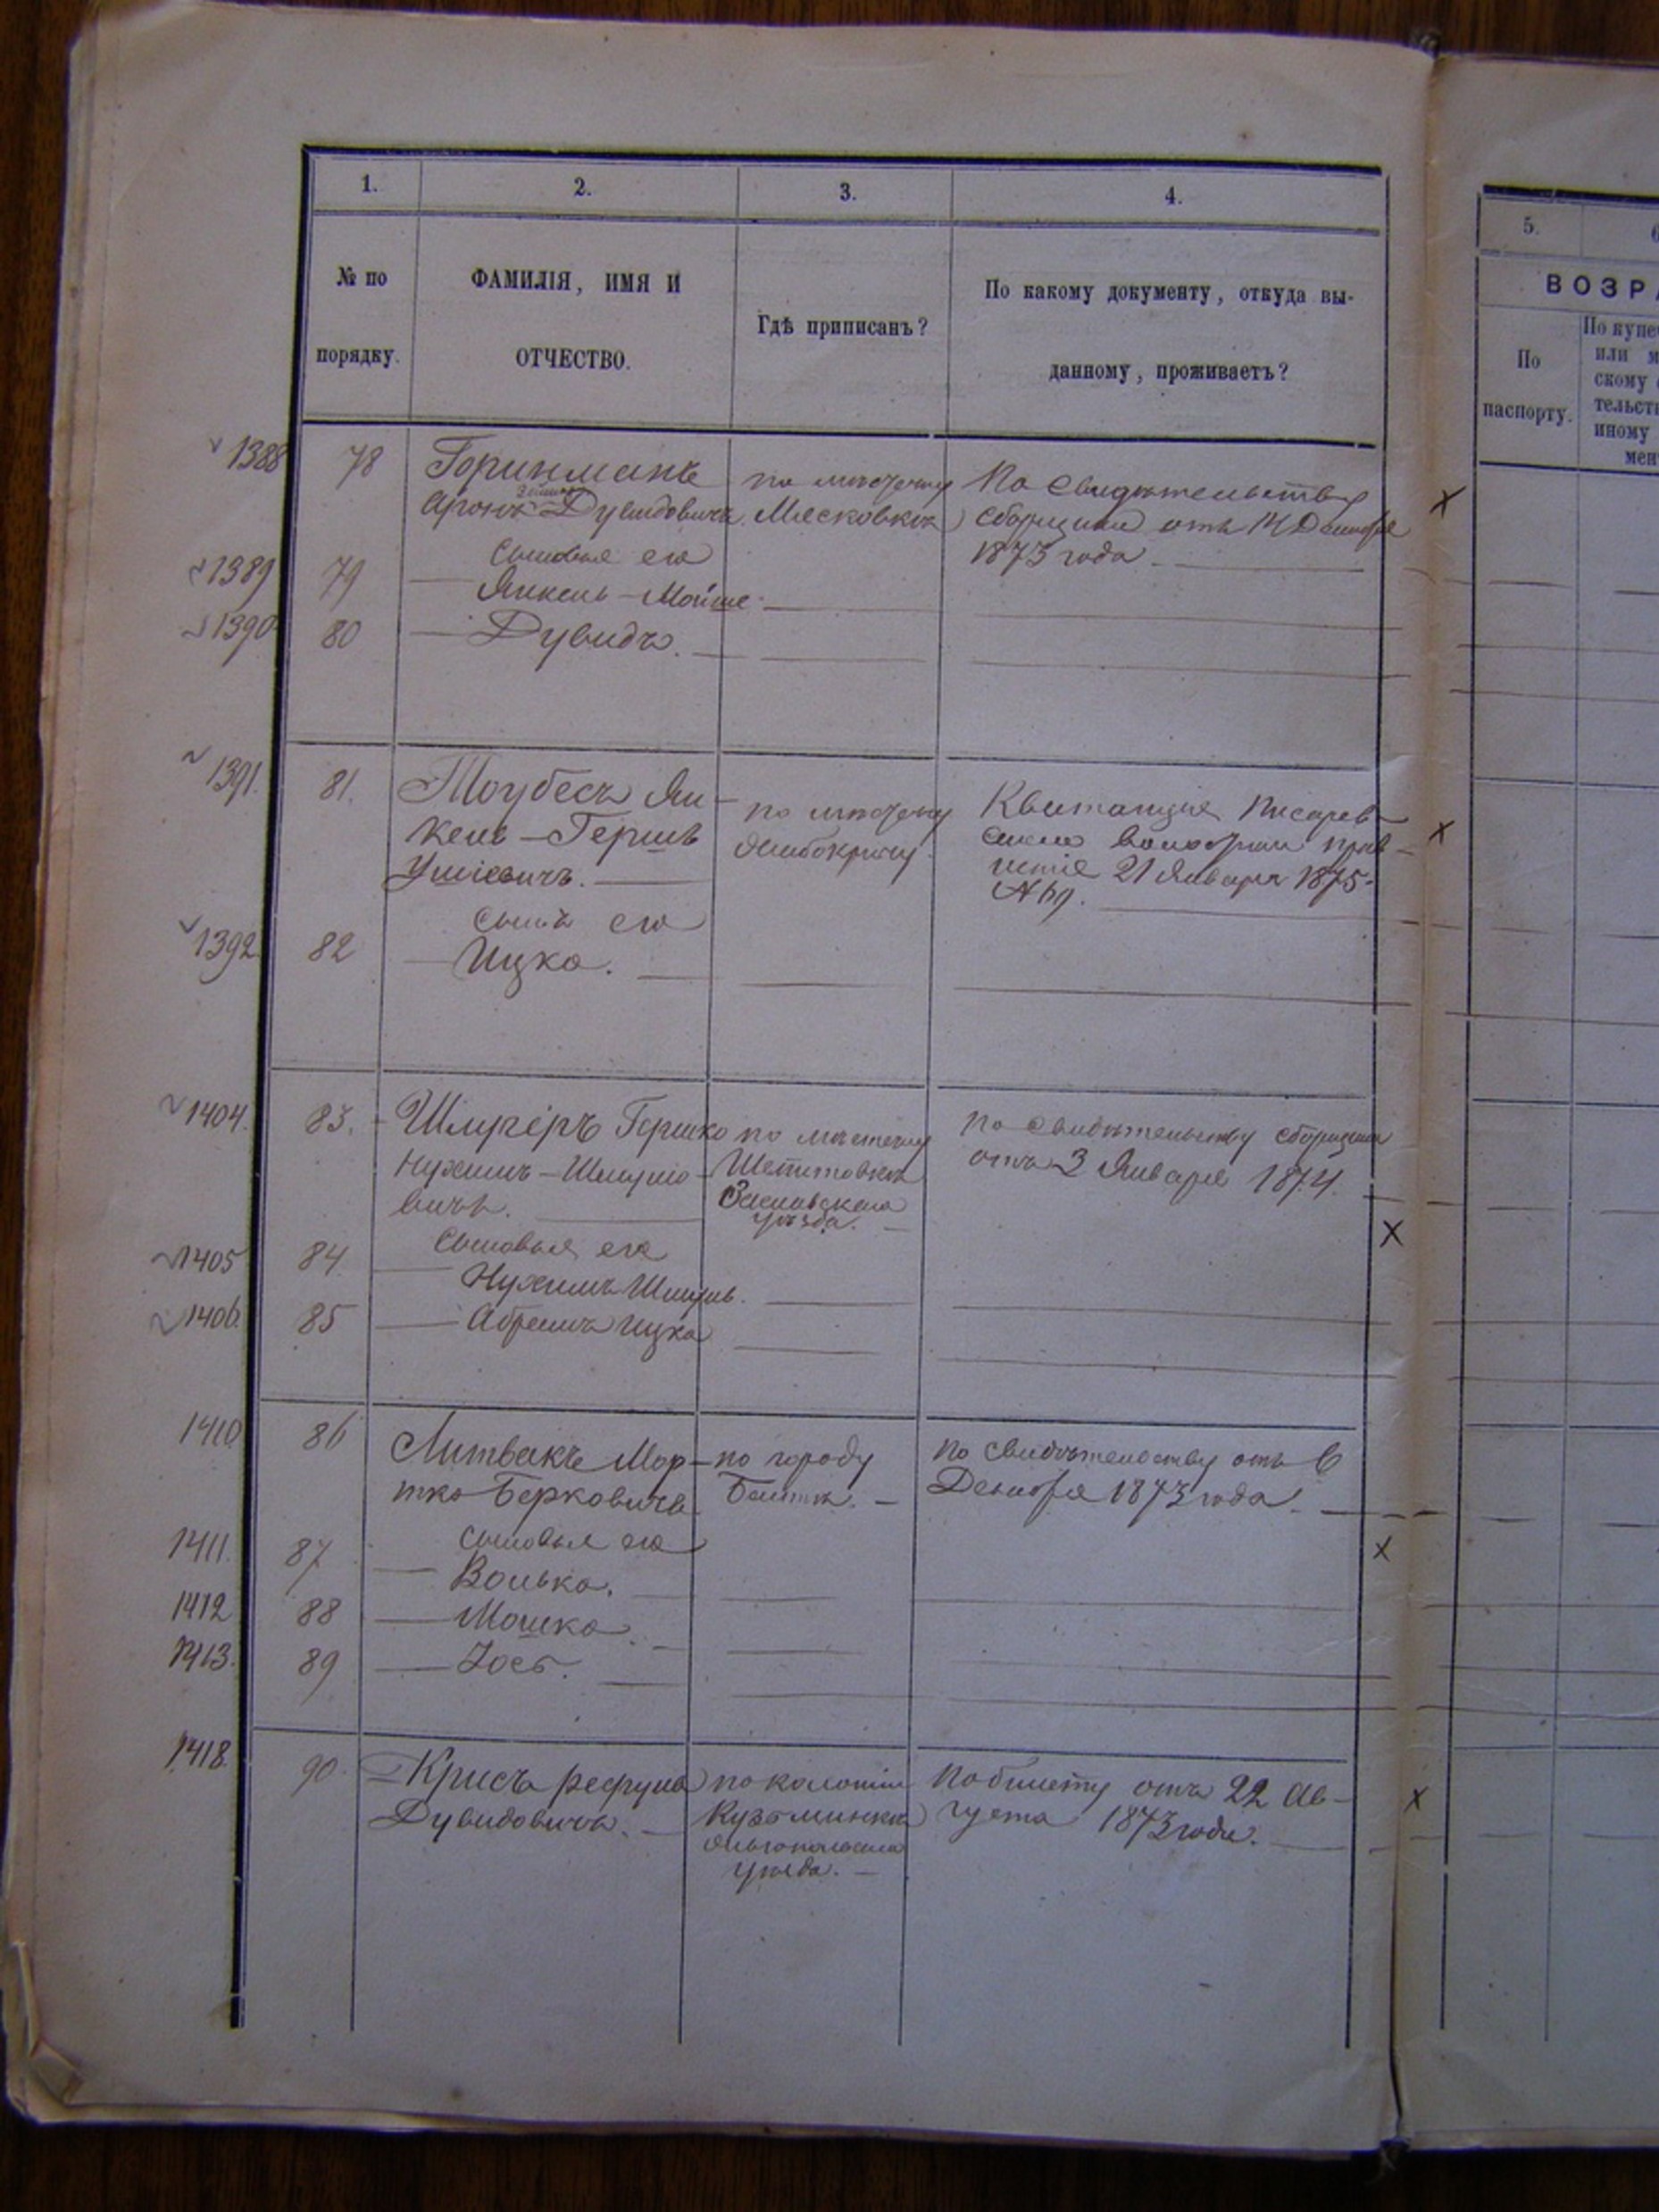 1. 2. 3. 4.
№ по
порядку.
ФАМИЛІЯ, ИМЯ И
ОТЧЕСТВО.
Гдѣ приписанъ?
По какому документу, откуда вы-
данному, проживаетъ?
5.
ВОЗРА
По
паспорту.
По купе
или м
скому
тельст
иному
мен
1388 78
Аронъ Дувидовичъ.
по мѣстечку
Мясковкѣ
По свидѣтельству
сборщика отъ 14 Декабря
1873 года
сыновья его
1389 79 Янкель-Мойше
1390 80 Дувидъ.
1391. 81. Тоубесъ Ян-
кель-Гершъ
Ушіевичъ.
по мѣстечку
Квитанція Писарев-
21 Января 1875
№ 69.
сынъ его
1392 82 Ицко.
1404. 83. Гершко
Нухимъ-Шмуліо-
вичъ.
по мѣстечку
Шепетовкѣ
Заславскаго
уѣзда.
по свидѣтельству сборщика
отъ 3 Января 1874.
сыновья его
1405 84 Нухимъ Шмуль.
1406. 85 Абрамъ Ицко
1410 86 Литвакъ Мор-
тко Берковичъ
по городу
Балтѣ.
по свидѣтельству отъ 6
Декабря 1873 года.
сыновья его
1411. 87 Волько.
1412 88 Мошко.
1413. 89 Іось.
1418. 90. Крисъ Рефулъ
Дувидовичъ.
по колоніи
Кузьминкѣ
Ольгопольскаго
уѣзда.
По билету отъ 22 Ав-
густа 1873 года.